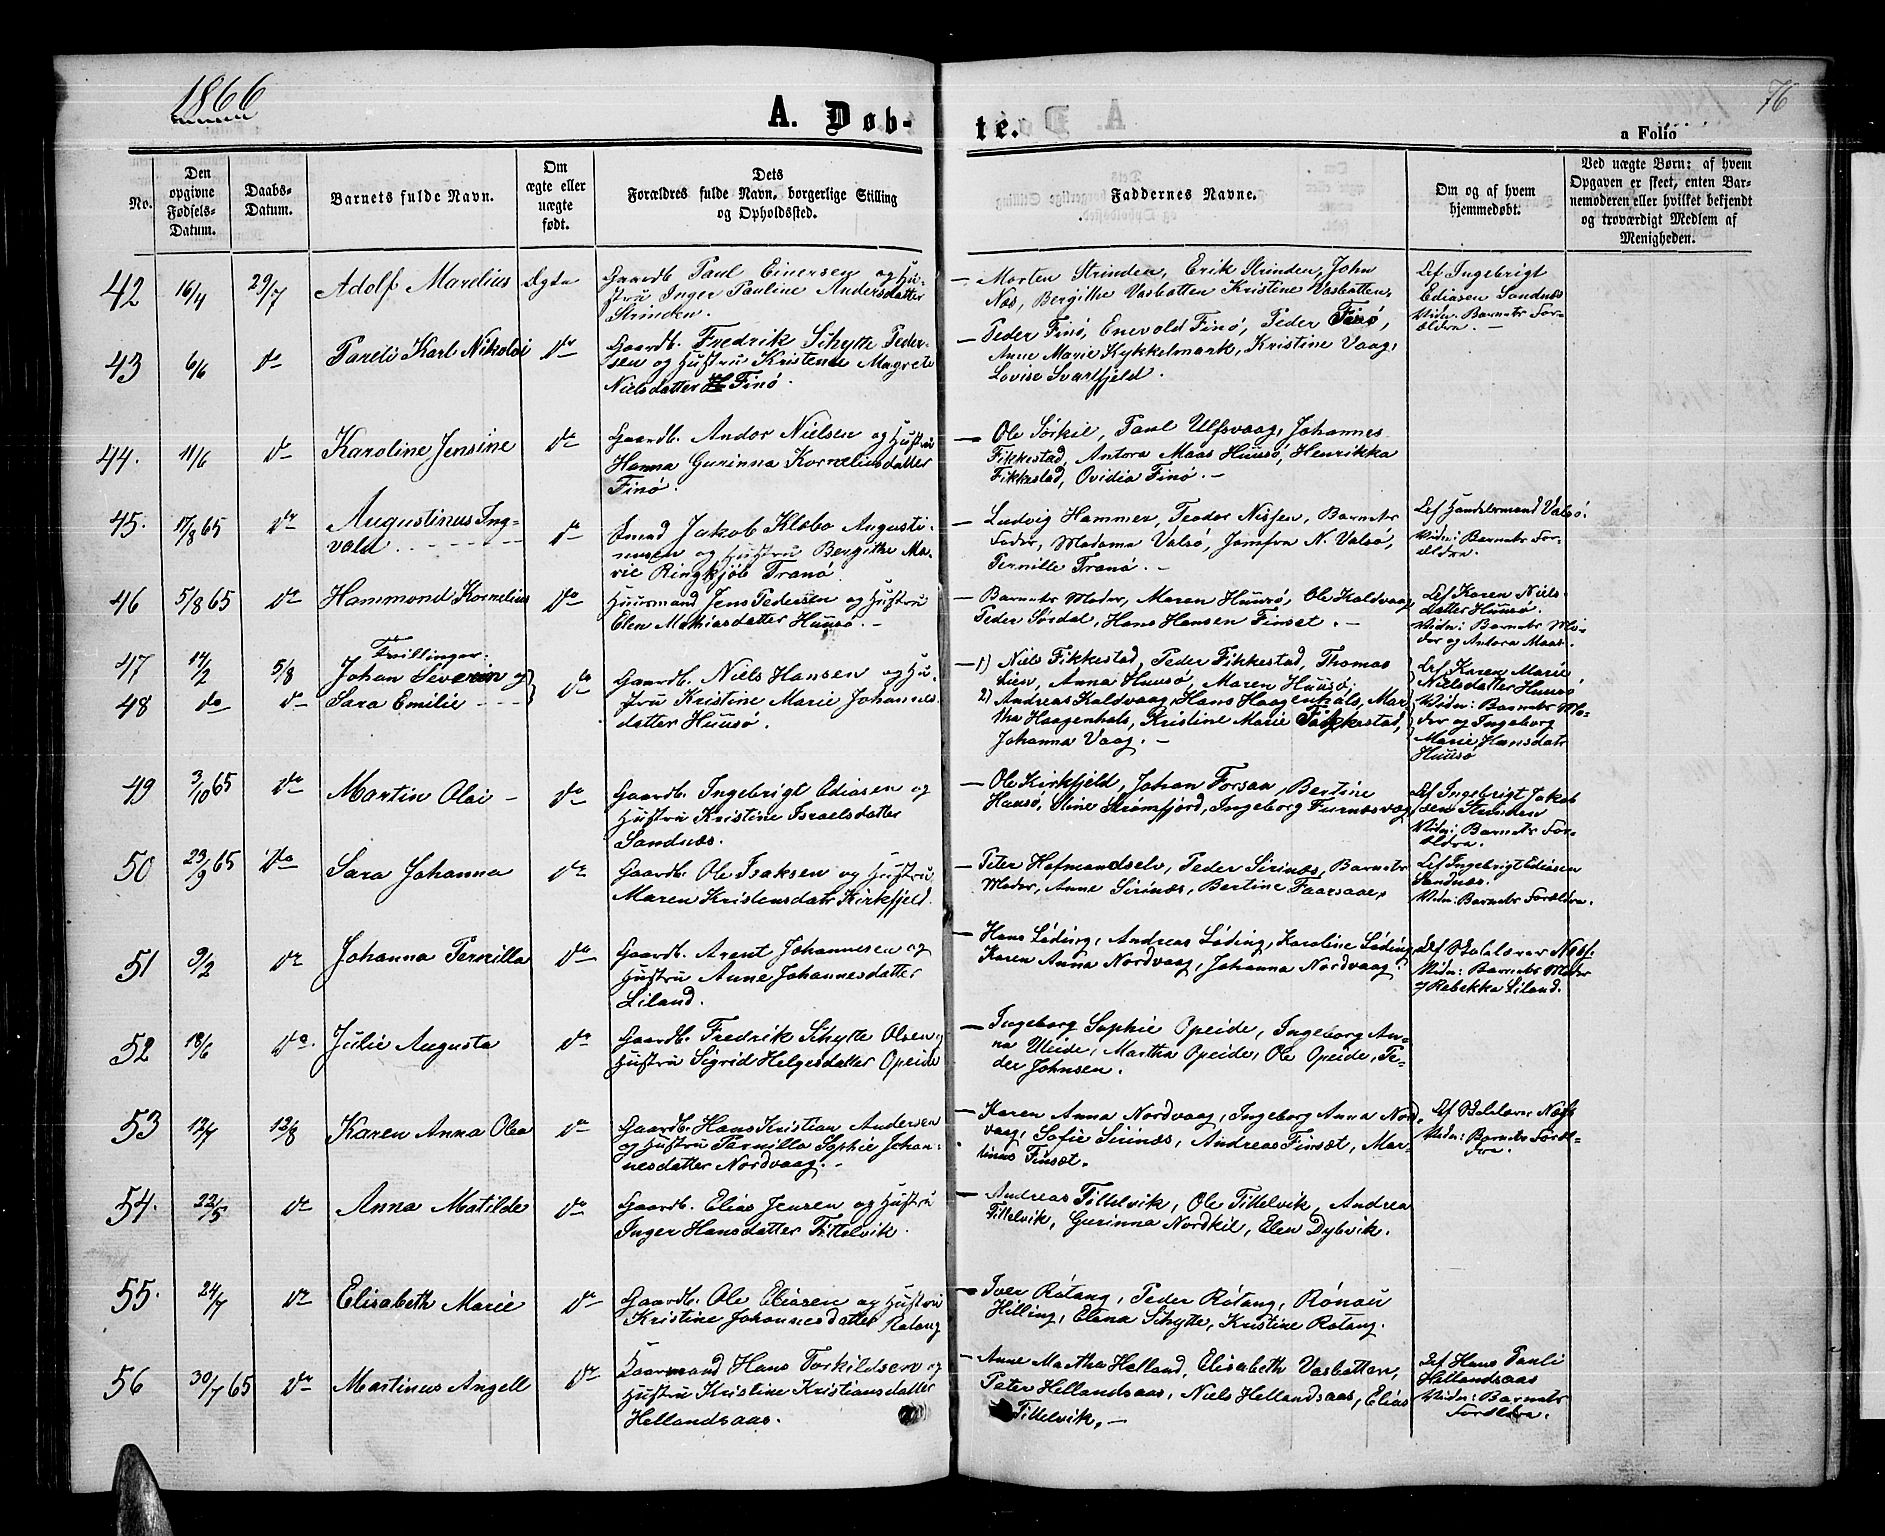 1866
76
A. Døb-
te.
a Folio
No.
Den
opgivne
Fødsels-
Datum.
Daabs-
Datum.
Barnets fulde Navn.
Om
ægte eller
uægte
født.
Dets
Forældres fulde Navn, borgerlige Stilling
og Opholdssted.
Faddernes Navne.
Om og af hvem
hjemmedøbt.
Ved uægte Børn: af hvem
Opgaven er skeet, enten Bar-
nemoderen eller hvilket bekjendt
og troværdigt Medlem af
Menigheden.
42 16/4 29/7 Adolf Marelius Ægte
Gaardb. Paul Einersen og Hu-
stru Inger Pauline Andersdatter
Strinden.
— Morten Strinden, Erik Strinden, John
Næs, Bergithe Vasbotten, Kristine Vasbotten.
Def Ingebrigt
Ediasen Sandnæs
Vidn: Barnets For-
ældre. —
43 6/6 do Pareli Karl Nikolai do
Gaardb. Fredrik Schytte Peder-
sen og Hustru Kristene Magrete
Nielsdatter Finø.
— Peder Finø, Enevold Finø, Peder Finø,
Anne Marie Kykkelmark, Kristine Vaag,
Lovise Svartfjeld.
44. 11/6 do Karoline Jensine do
Gaardb. Andor Nielsen og Hustru
Hanna Gurinna Korneliusdatter
Finø.
— Ole Sørkil, Paul Ulfsvaag, Johannes
Fikkestad, Antora Maas Huusø, Henrikka
Fikkestad, Ovidia Finø. —
45. 17/8 65 do Augustinus Ing-
vald do
Smed Jakob Klæbo Augusti-
nusen og Hustru Bergithe Ma-
rie Ringkjøb Tranø.
— Ludvig Hammer, Teodor Nissen, Barnets
Fader, Madame Valsø, Jomfru N. Valsø,
Pernille Tranø. —
Def Handelsmand Valsø.
Vidn: Barnets For-
ældre.
46 5/8 65 do Hammond Kornelius do
Huusmand Jens Pedersen og Hustru
Elen Mathiasdatter Huusø. —
— Barnets Moder, Maren Huusø, Ole Kaldvaag,
Peder Sørdal, Hans Hansen Finset. —
Def Karen Niels-
datter Huusø.
Vidn: Barnets Mo-
der og Antora Maas.
Tvillinger:
47 14/2 5/8 Johan Severin og
48 do do Sara Emilie do
Gaardb. Niels Hansen og Hu-
stru Kristine Marie Johannes-
datter Huusø.
— 1) Niels Fikkestad, Peder Fikkestad, Thomas
Lien, Anna Huusø, Maren Huusø.
2) Andreas Kaldvaag, Hans Haagenhals, Mar-
tha Haagenhals, Kristine Marie Fikkestad,
Johanna Vaag. —
Def Karen Marie
Nielsdatter Huusø
Vidn: Barnets Mo-
der og Ingeborg
Marie Hansdatr
Huusø
49 3/10 65 do Martin Olai — do
Gaardb. Ingebrigt Ediasen og
Hustru Kristine Israelsdatter
Sandnæs.
— Ole Kirkfjeld, Johan Forsan, Bertine
Huusø, Stine Strømfjord, Ingeborg Furnæsvag
Def Ingebrigt Jakob
sen Strinden
Vidn: Barnets For-
ældre.
50 23/9 65 do Sara Johanna do
Gaardb. Ole Isaksen og Hustru
Maren Kristensdatr Kirkfjeld.
— Peter Hofmandselv, Peder Sirinæs, Barnets
Moder, Anne Sirinæs, Bertine Faarsaae.
Def Ingebrigt Ediasen
Sandnæs.
Vidn: Barnets Forældre.
51 9/2 do Johanna Pernilla do
Gaardb. Arent Johannesen og
Hustru Anne Johannesdatter
Liland.
— Hans Løding, Andreas Løding, Karoline Løding
Karen Anna Nordvaag, Johanna Nordvaag.
Vidn: Barnets Moder
og Rebekka Liland.
52 18/6 do. Julie Augusta do
Gaardb. Fredrik Schytte Olsen,
Hustru Sigrid Helgesdatter Opeide
— Ingeborg Sophie Opeide, Ingeborg An-
na Uleide, Martha Opeide, Ole Opeide, Pe-
der Johnsen.
53 12/7 12/8 Karen Anna Olea do
Gaardb. Hans Kristian Andersen
og Hustru Pernilla Sophie Johan-
nesdatter Nordvaag. —
— Karen Anna Nordvaag, Ingeborg Anna Nord-
vaag, Sofie Sirinæs, Andreas Finsæt, Mar-
tinus Finsæt.
Vidn: Barnets Foræl-
dre.
54. 22/5 do Anna Matilde do
Gaardb. Elias Jensen og Hustru
Inger Hansdatter Tillelvik.
— Andreas Tillelvik, Ole Tillelvik, Andrea
Tillelvik, Gurinna Nordkil, Elen Dybvik.
55. 24/7 do Elisabeth Marie do
Gaardb. Ole Eliasen og Hustru
Kristine Johannesdatter Rotang
— Iver Rotang, Peder Rotang, Rønau
Hilling, Elena Schytte, Kristine Rotang.
56 30/7 65 do Martinus Angell do
Gaardmand Hans Torkildsen og
Hustru Kristine Kristiansdatter
Hellandsaas.
— Anne Martha Helland, Elisabeth Vasbotten,
Peter Hellandsaas, Niels Hellandsaas, Elias
Tillelvik. —
Def Hans Pauli
Hellandsaas
Vidn: Barnets
Forældre.